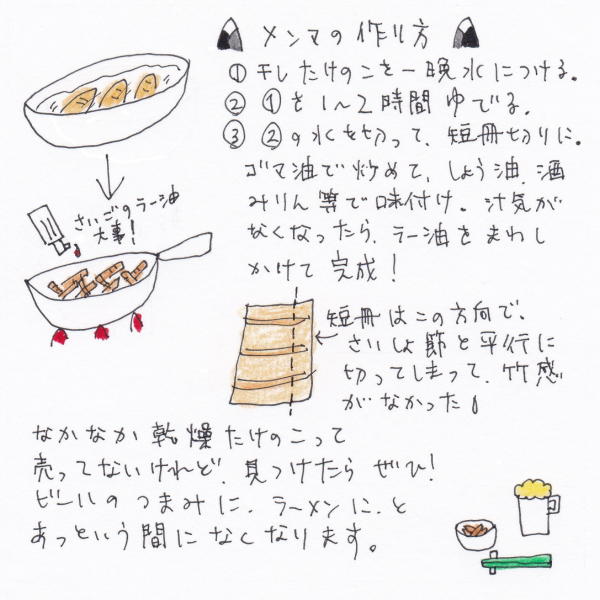 メンマの作り方
① 干したけのこを一晩水につける。
② ①を1〜2時間ゆでる。
③ ②の水を切って、短冊切りに。
ゴマ油で炒めて、しょう油、酒
みりん等で味付け。汁気が
なくなったら、ラー油をまわし
かけて完成!
さいごのラー油
大事!
短冊はこの方向で。
さいしょ節と平行に
切ってしまって、竹感
がなかった
なかなか乾燥たけのこって
売ってないけれど、見つけたらぜひ!
ビールのつまみに、ラーメンに、と
あっという間になくなります。